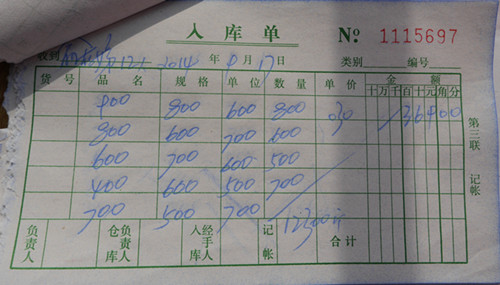 入库单 № 1115697
收到 2014 年 9月17日 类别 编号
货号 品名 规格 单位 数量 单价 金额
十万千百十元角分
800 600 800
800 600 700 600
600 700 600 500
400 600 500 700
700 500 700
12300
负责人 仓库负责人 经手人 记帐 合计
第三联 记帐